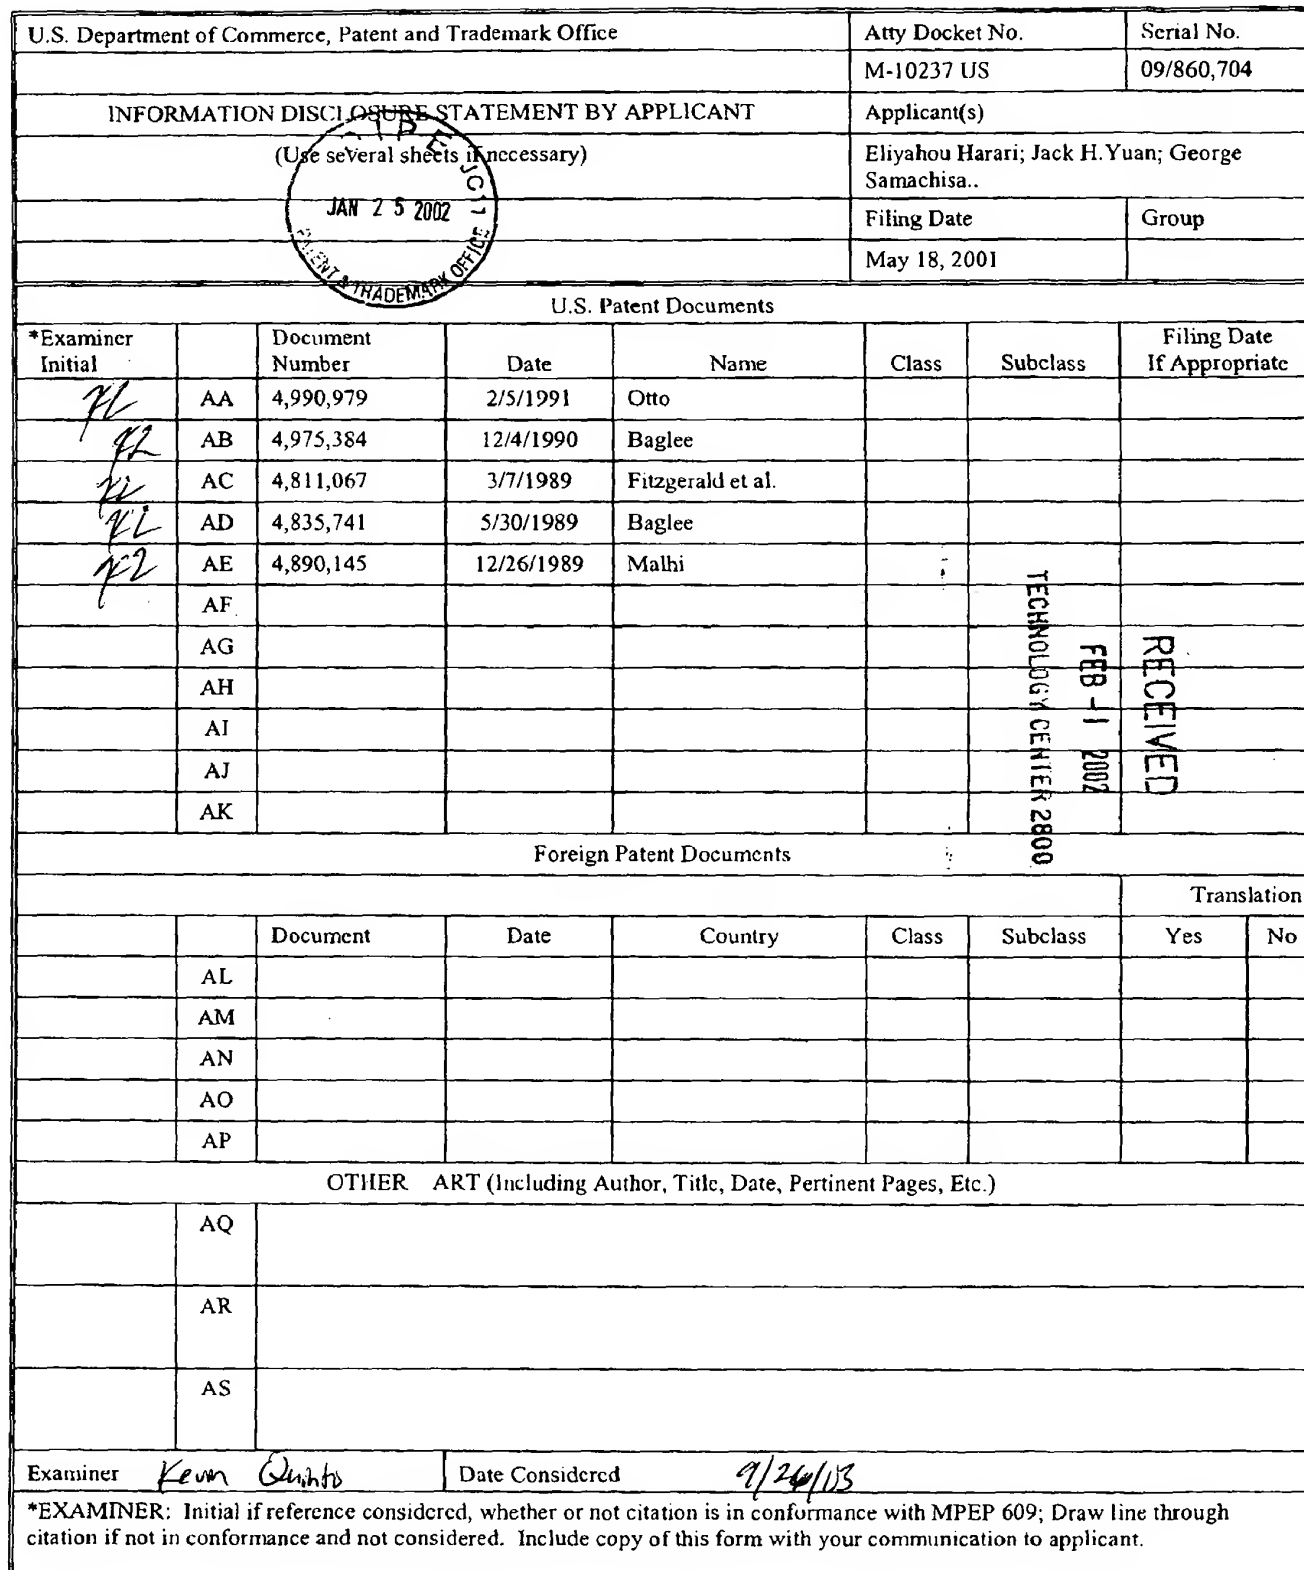 U.S. Department of Commerce, Patent and Trademark Office Atty Docket No. Serial No.
M-10237 US 09/860,704
INFORMATION DISCLOSURE STATEMENT BY APPLICANT Applicant(s)
(Use several sheets if necessary) Eliyahou Harari; Jack H.Yuan; George
Samachisa..
OIPE JC11
JAN 25 2002
PATENT & TRADEMARK OFFICE
Filing Date Group
May 18, 2001
U.S. Patent Documents
*Examiner Document Filing Date
Initial Number Date Name Class Subclass If Appropriate
AA 4,990,979 2/5/1991 Otto
AB 4,975,384 12/4/1990 Baglee
AC 4,811,067 3/7/1989 Fitzgerald et al.
AD 4,835,741 5/30/1989 Baglee
AE 4,890,145 12/26/1989 Malhi
AF
AG
AH
AI
AJ
AK
RECEIVED
FEB -1 2002
TECHNOLOGY CENTER 2800
Foreign Patent Documents
Translation
Document Date Country Class Subclass Yes No
AL
AM
AN
AO
AP
OTHER ART (Including Author, Title, Date, Pertinent Pages, Etc.)
AQ
AR
AS
Examiner Kevin Quinto Date Considered 9/26/03
*EXAMINER: Initial if reference considered, whether or not citation is in conformance with MPEP 609; Draw line through
citation if not in conformance and not considered. Include copy of this form with your communication to applicant.